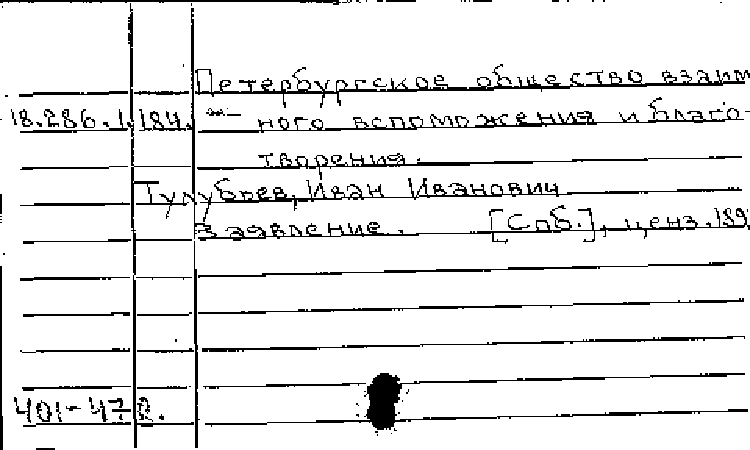 Петербургское общество взаим
18.286.1.184. ного вспоможения и благо-
творения.
Тулубьев, Иван Иванович
Заявление. [Спб.], ценз. 189
401-47